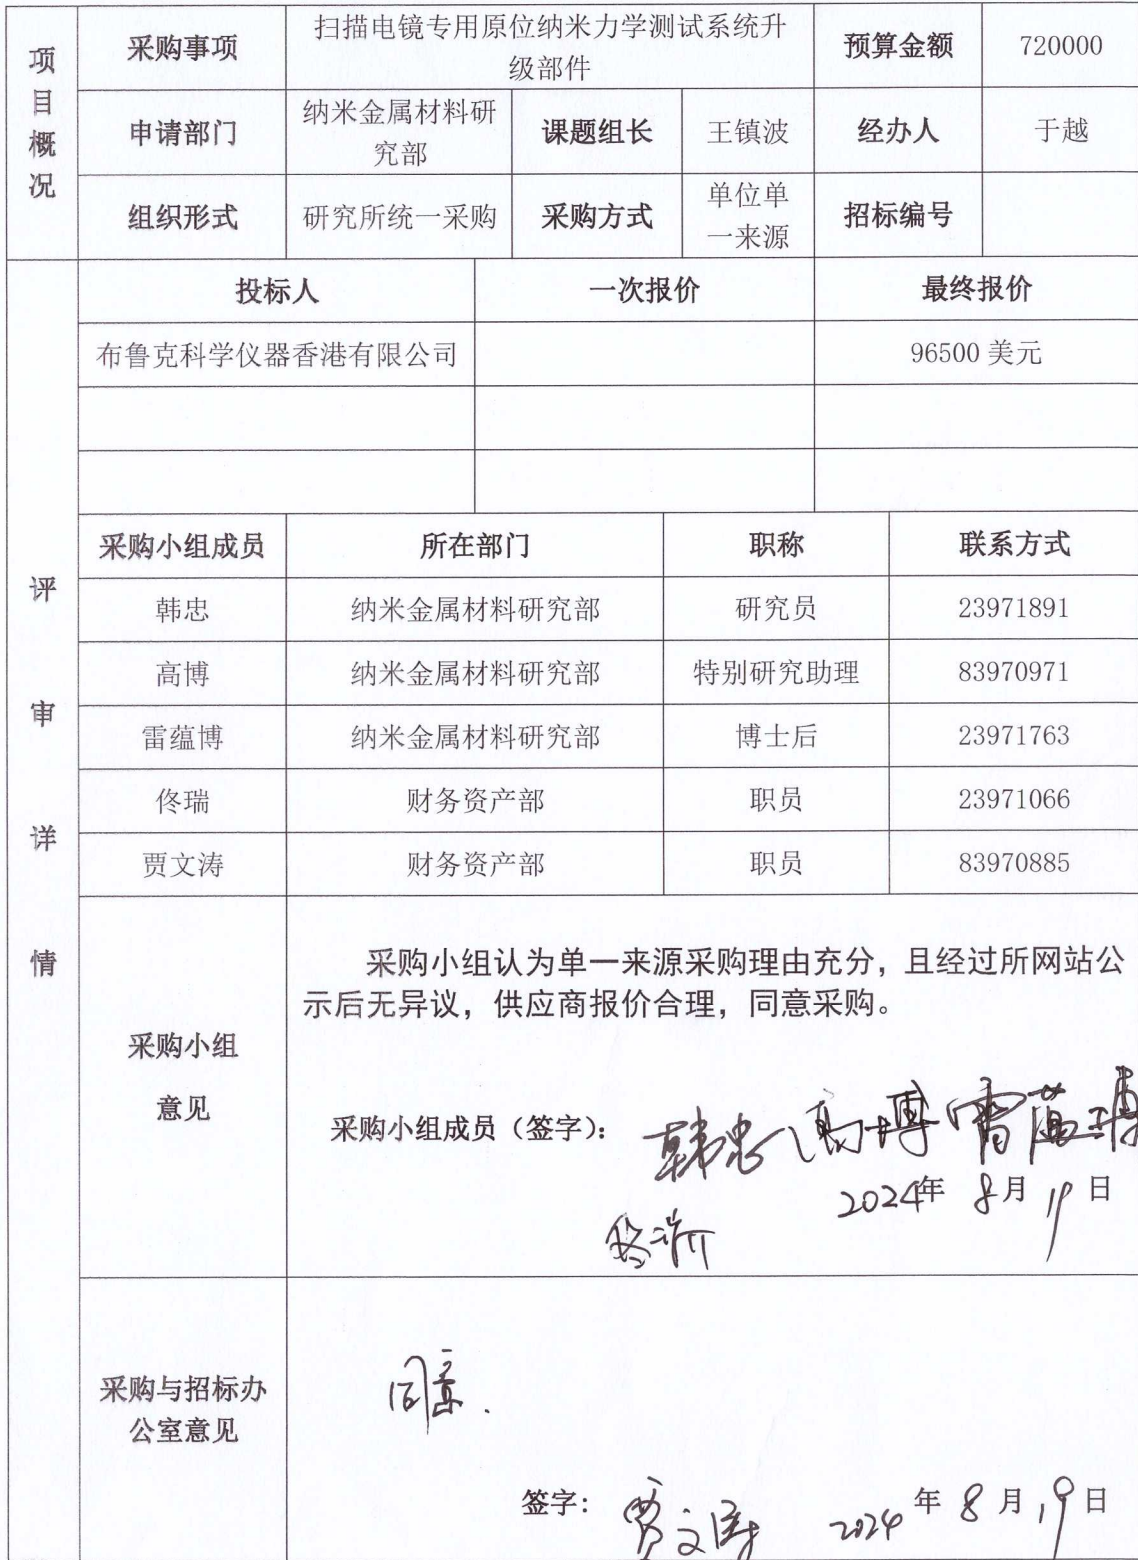 项目概况
采购事项
扫描电镜专用原位纳米力学测试系统升
级部件
预算金额
720000
申请部门
纳米金属材料研
究部
课题组长
王镇波
经办人
于越
组织形式
研究所统一采购
采购方式
单位单
一来源
招标编号
评审详情
投标人
一次报价
最终报价
布鲁克科学仪器香港有限公司
96500 美元
采购小组成员
所在部门
职称
联系方式
韩忠
纳米金属材料研究部
研究员
23971891
高博
纳米金属材料研究部
特别研究助理
83970971
雷蕴博
纳米金属材料研究部
博士后
23971763
佟瑞
财务资产部
职员
23971066
贾文涛
财务资产部
职员
83970885
采购小组
意见
采购小组认为单一来源采购理由充分，且经过所网站公
示后无异议，供应商报价合理，同意采购。
采购小组成员（签字）：
韩忠 高博 雷蕴博
2024年 8月 19 日
佟瑞
采购与招标办
公室意见
同意.
签字：
贾文涛
2024 年 8 月 19 日